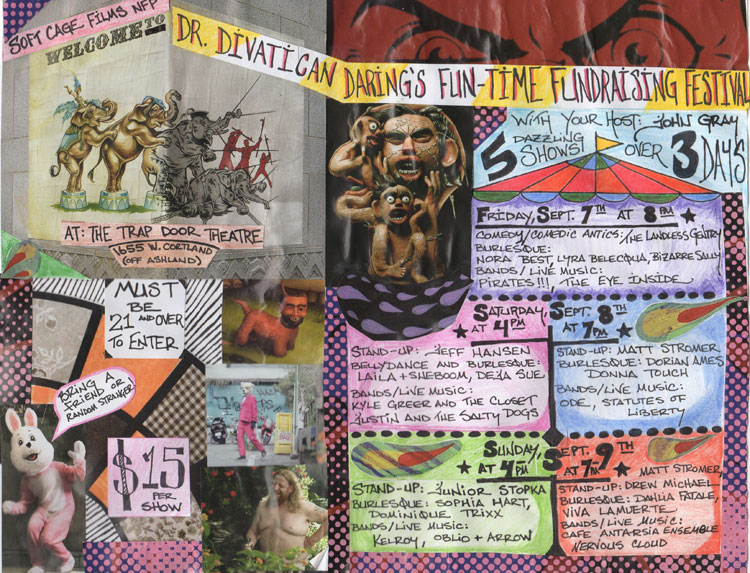 SOFT CAGE FILMS NFP
WELCOME TO
DR. DIVATICAN DARING'S FUN-TIME FUNDRAISING FESTIVAL
AT: THE TRAP DOOR THEATRE
1655 W. CORTLAND
(OFF ASHLAND)
MUST
BE
21 AND OVER
TO ENTER
BRING A
FRIEND OR
RANDOM STRANGER
$15
PER
SHOW
WITH YOUR HOST: JOHN GRAY
5 DAZZLING
SHOWS! OVER 3 DAYS
FRIDAY, SEPT. 7TH AT 8PM
COMEDY/COMEDIC ANTICS: THE LANDLESS GENTRY
BURLESQUE:
NORA BEST, LYRA BELECQUA, BIZARRE SALLY
BANDS/LIVE MUSIC:
PIRATES!!!, THE EYE INSIDE
SATURDAY, SEPT. 8TH
AT 4PM
STAND-UP: JEFF HANSEN
BELLYDANCE AND BURLESQUE:
LAILA + SHEBOOM, DEJA SUE
BANDS/LIVE MUSIC:
KYLE GREER AND THE CLOSET
JUSTIN AND THE SALTY DOGS
AT 7PM
STAND-UP: MATT STROMER
BURLESQUE: DORIAN AMES
DONNA TOUCH
BANDS/LIVE MUSIC:
ODE, STATUTES OF
LIBERTY
SUNDAY, SEPT. 9TH
AT 4PM
STAND-UP: JUNIOR STOPKA
BURLESQUE: SOPHIA HART,
DOMINIQUE TRIXX
BANDS/LIVE MUSIC:
KELROY, OBLIO + ARROW
AT 7PM
MATT STROMER,
STAND-UP: DREW MICHAEL
BURLESQUE: DAHLIA FATALE,
VIVA LAMUERTE
BANDS/LIVE MUSIC:
CAFE ANTARSIA ENSEMBLE
NERVOUS CLOUD